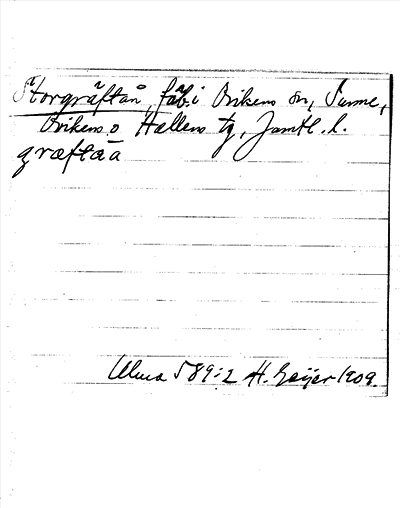 Storgräftån, fäb. i Ovikens sn, Sunne,
Ovikens o Hallens tg, Jämtl. l.
græftåa
Ulma 589:2 H. Geijer 1909.